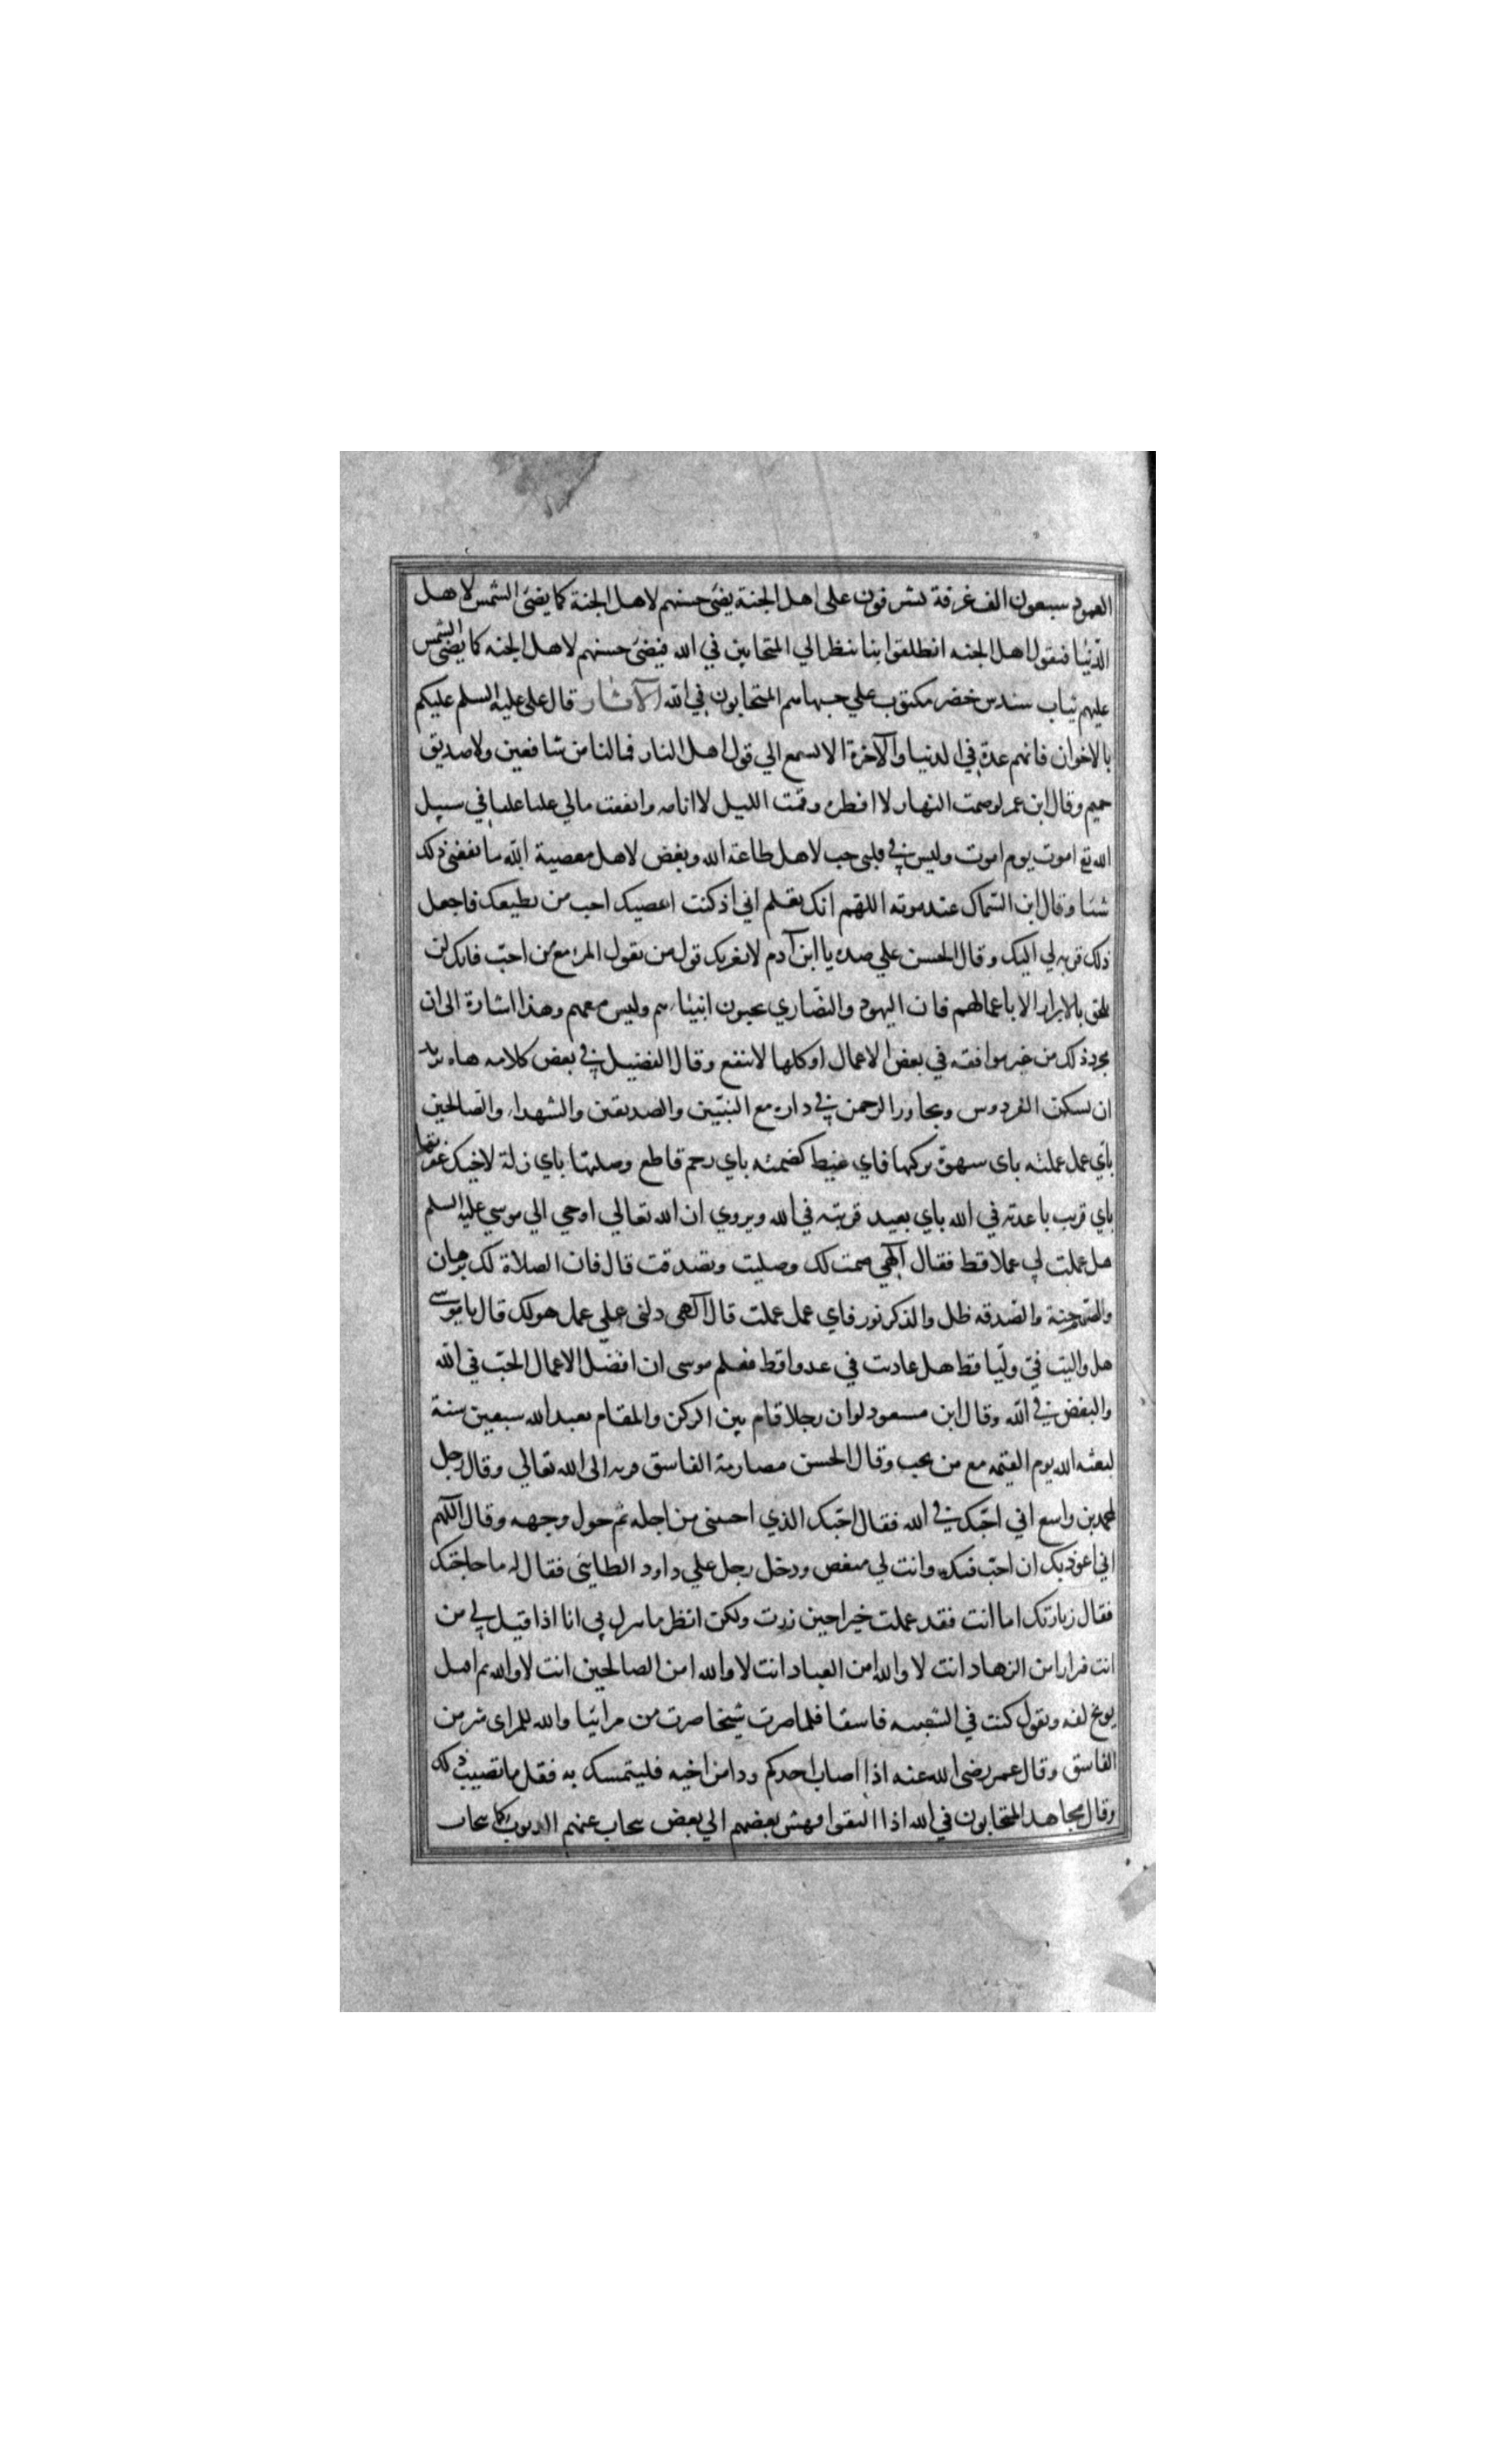 العمود سبعون الف غرفة يشرفون على اهل الجنة يضئ حسنهم لاهل الجنة كما يضئ الشمس لاهل
الدنيا فيقول اهل الجنه انطلقوا بنا ننظر الي المتحابين في الله فيضئ حسنهم لاهل الجنه كما يضئ الشمس
عليهم ثياب سندس خضر مكتوب علي جباههم المتحابون في الله الآثار قال علي عليه السلم عليكم
بالاخوان فانهم عدة في الدنيا والآخرة الا تسمع الي قول اهل النار فمالنا من شافعين ولا صديق
حميم وقال ابن عمر لو صمت النهار لا افطره وقمت الليل لا انامه وانفقت مالي علقا علقا في سبيل
الله تع اموت يوم اموت وليس في قلبي حب لاهل طاعة الله وبغض لاهل معصية الله ما نفعني ذلك
شيئا وقال ابن السماك عند موته اللهم انك تعلم اني اذ كنت اعصيك احب من يطيعك فاجعل
ذلك قربة لي اليك وقال الحسن علي ضده يا ابن آدم لا يغرنك قول من يقول المرء مع من احب فانك لن
تلحق بالابرار الا باعمالهم فان اليهود والنصاري يحبون انبيائهم وليس معهم وهذا اشارة الى ان
مجرد ذلك من غير موافقه في بعض الاعمال او كلها لا ينفع وقال الفضيل في بعض كلامه هاه تريد
ان تسكن الفردوس وتجاور الرحمن في داره مع النبيين والصديقين والشهداء والصالحين
باي عمل عملته باى شهوة تركتها فاي غيظ كضمته باي رحم قاطع وصلتها باي زلة لاخيك غفرتها
باي قريب باعدته في الله باي بعيد قربته في الله ويروي ان الله تعالي اوحي الي موسي عليه السلم
هل عملت لي عملا قط فقال آلهي صمت لك وصليت وتصدقت قال فان الصلاة لك برهان
والصوم جنة والصدقه ظل والذكر نور فاي عمل عملت قال آلهي دلني علي عمل هو لك قال يا موسي
هل واليت في وليا قط هل عاديت في عدوا قط فعلم موسى ان افضل الاعمال الحب في الله
والبغض في الله وقال ابن مسعود لو ان رجلا قام بين الركن والمقام يعبد الله سبعين سنة
لبعثه الله يوم القيمه مع من يحب وقال الحسن مصارمة الفاسق قربه الى الله تعالي وقال رجل
لمحمد بن واسع اني احبك في الله فقال احبك الذي احببتني من اجله ثم حول وجهه وقال اللهم
اني اعوذ بك ان احب فيك وانت لي مبغض ودخل رجل علي داود الطايئى فقال له ما حاجتك
فقال زيارتك اما انت فقد عملت خيرا حين زرت ولكن انظر ما ينزل بي انا اذا قيل لي من
انت فتزار امن الزهاد انت لا والله امن العباد انت لا والله امن الصالحين انت لا والله ثم اهل
يوبخ نفسه ويقول كنت في الشبيبه فاسقا فلما صرت شيخا صرت من مرائيا والله للمراى شر من
الفاسق وقال عمر رضي الله عنه اذا اصاب احدكم ودا من اخيه فليتمسك به فقل ما تصيب ذلك
وقال مجاهد المتحابون في الله اذا التقوا وهش بعضهم الي بعض عنهم الذنوب كما